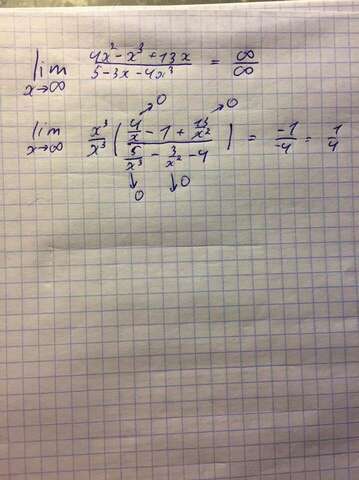 lim x→∞ (4x² - x³ + 13x)/(5 - 3x - 4x³) = ∞/∞
lim x→∞ x³/x³ ( (4/x - 1 + 13/x²)/(5/x³ - 3/x² - 4) ) = -1/-4 = 1/4
→0 →0
↓0 ↓0